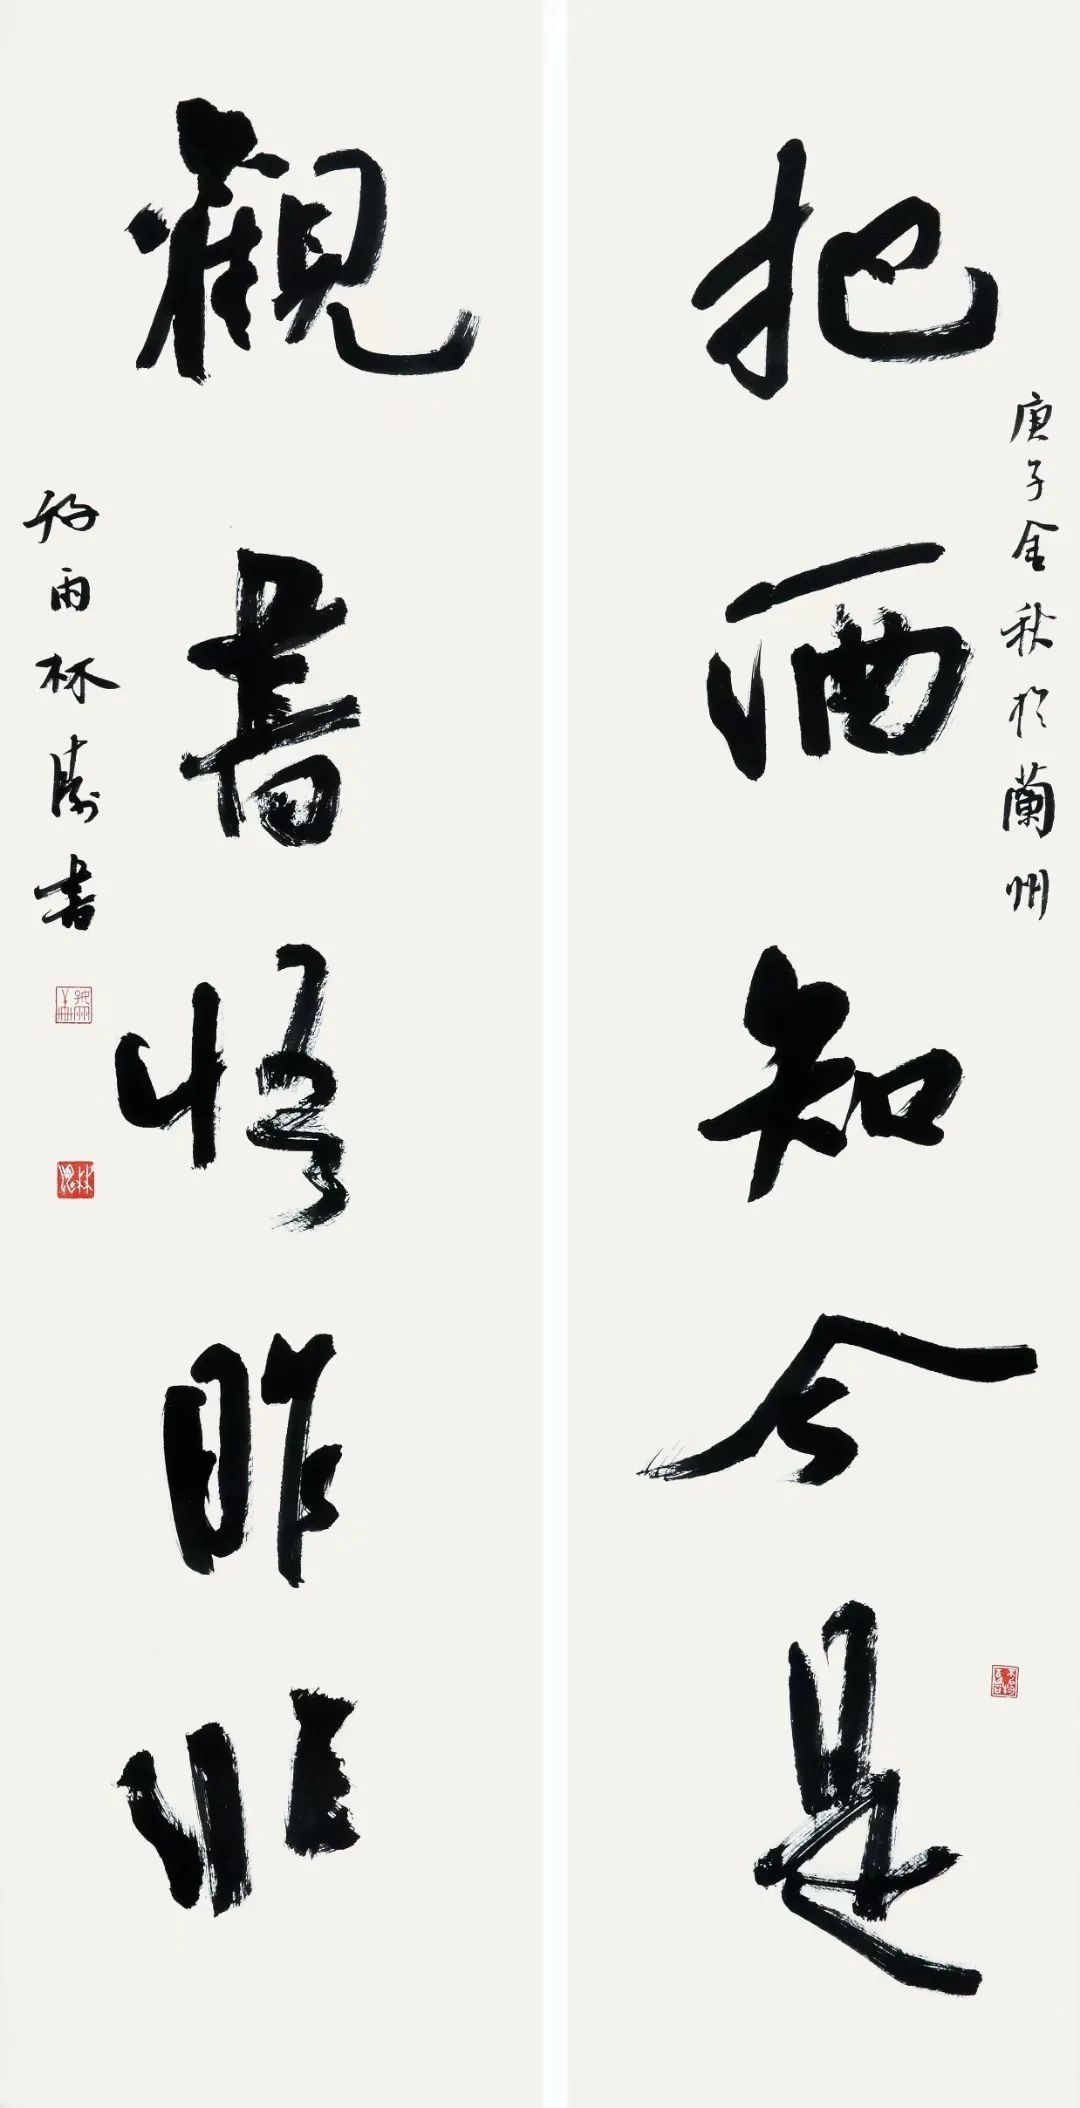 把酒知今是
庚子金秋於蘭州
觀書悟昨非
雨林濤書